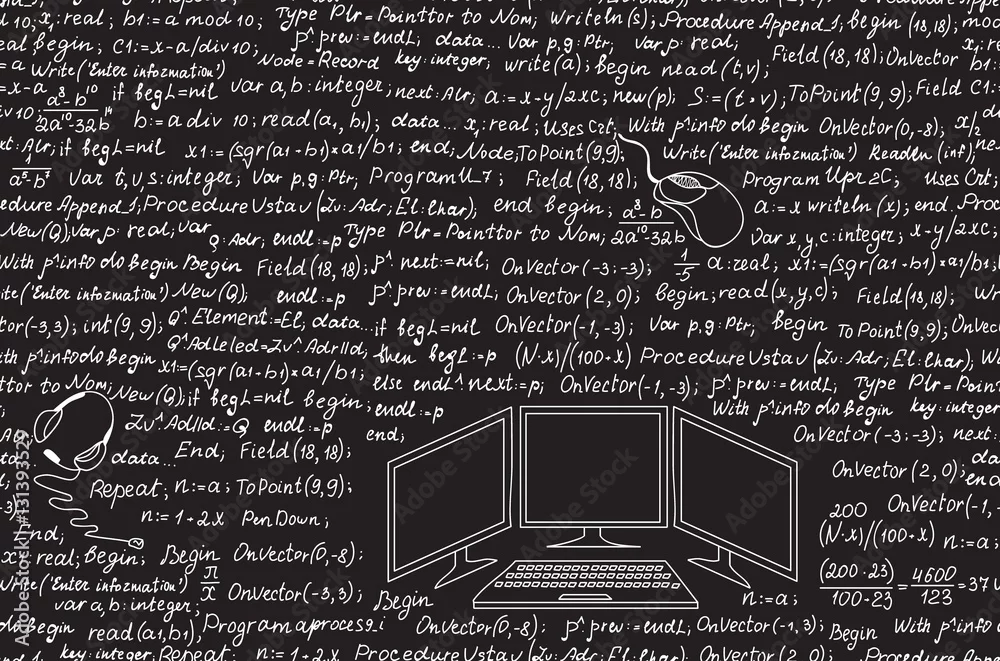 d 10; x; real; b1:= a mod 10; Type Plr = Pointtor to Nom; writeln(s); Procedure Append_1; begin (18,18); mod
eal begin; C1:=x-a/div 10; p^prev:=endL; data... Var p,g:Ptr; var p: real; Field(18,18); OnVector b1:
= a Write('Enter infozmation') Node=Record key:integer; write(a); begin read(t,v);
=x-a a⁸-b¹⁰ if begL=nil var a,b:integer; next:Alr; a:=x-y/2xc; new(p); S:=(t*v); ToPoint(9,9); Field C1:=
div 10; 2a¹⁰-32b¹⁴ b:=a div 10; read(a1,b1); data... x; real; uses Czt; With p^info do begin OnVector(0,-8); x/2
xt:Alr; if begL=nil x1:=(sqr(a1+b1)*a1/b1; end; Node; ToPoint(9,9); Write('Enter infozmation') Readln(inf); ne
1 a⁵-b⁵ Var t,v,s:integer; Var p,g:Ptr; Program U_7; Field(18,18); Program Upr 2C; uses Czt;
edure Append_1; Procedure Vstav(Zv:Adr; El:Char); end begin; a⁸-b a:=x writeln(x); end. Proc
New(Q); Var p: real; Var Q:Adr; endl:=p Type Plr=Pointtor to Nom; 2a¹⁰-32b Var x,y,c:integer; x-y/2xc;
With p^info do begin Begin Field(18,18); p^next:=nil; OnVector(-3;-3); 1 -5 a:real; x1:=(sqr(a1+b1)*a1/b1;
ite('Enter infozmation') New(Q); endl:=p p^prev:=endL; OnVector(2,0); begin; read(x,y,c); Field(18,18); Wr
tor(-3,3); int(9,9); Q^Element:=El; data... if begL=nil OnVector(-1,-3); Var p,g:Ptr; begin ToPoint(9,9); OnVec
ith p^info do Begin Q^Adleled=Zv^Adrlld; then begL:=p (N·x)/(100+x) Procedure Vstav(Zv:Adr; El:Char); W
ttor to Nom; x1=(sqr(a1+b1)*a1/b1; else endL^next:=p; OnVector(-1,-3); p^prev:=endL; Type Plr=Point
New(Q); if begL=nil begin; endl:=p With p^info do begin key:integer
Zv^Adlld:=Q endl:=p end; OnVector(-3;-3); next:
data... End; Field(18,18); OnVector(2,0);
Repeat; n:=a; ToPoint(9,9); 200 OnVector(-1,
n:=1+2x PenDown; (N·x)/(100+x) n:=a;
x; real; Begin; Begin OnVector(0,-8);
Write('Enter infozmation') π/x OnVector(-3,3); Begin n:=a; (200·23)/(100-23)=4600/123=37
var a,b:integer;
do Begin read(a1,b1), Program aprocess_i OnVector(0,-8); p^prev:=endL; OnVector(-1,-3); Begin With p^info
key:integer; Repeat; n:=1+2x Procedure Vstav(Zv:Adr; El:Char); OnVector(2,0); Type
Adobe Stock | #131393529